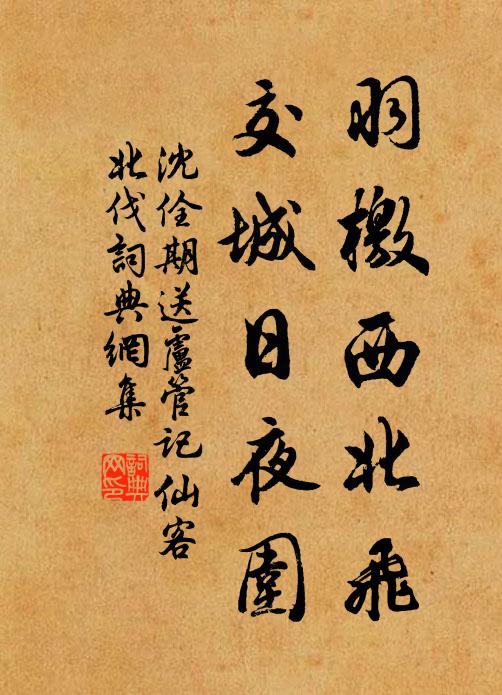 羽檄西北飛
交城日夜圍
沈佺期送盧管記仙客
北伐詞典網集
詞典
网印